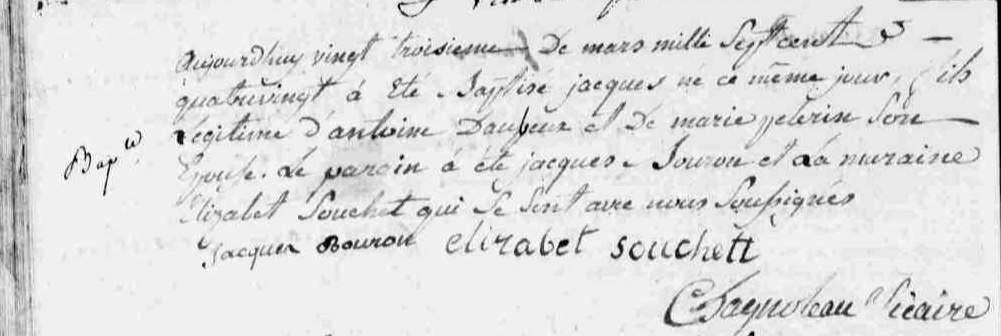 aujourdhuy vingt troisieme De mars mille Sept cent
quatrevingt à été Baptisé jacques né ce même jour, fils
Legitime d'antoine Daubeur et De marie pelerin Son
Bap.
Epouse. Le parain à été jacques Bourou et La maraine
Elizabet Souchet qui Se Sont avec nous Soussignés
Jacques Bourou elizabet souchett
Chagnoleau Vicaire